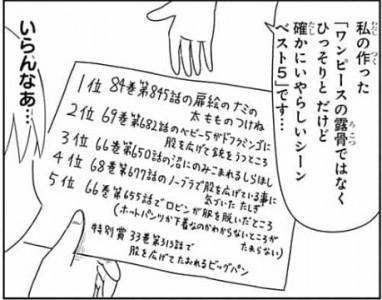 私の作った
「ワンピースの露骨ではなく
ひっそりとだけど
確かにいやらしいシーン
ベスト5」です…
1位 84巻第845話の扉絵のナミの
太もものつけね
2位 69巻第682話のベビー5がドフラミンゴに
股を広げて銃をうつところ
3位 66巻第650話の沼にのみこまれるしらほし
4位 68巻第677話のノーブラで股を広げている事に
気づいたたしぎ
5位 66巻第655話でロビンが服を脱いだところ
(ホットパンツか下着なのかわからないところが
たまらない)
特別賞 33巻第313話で
股を広げてたおれるビッグパン
いらんなあ…